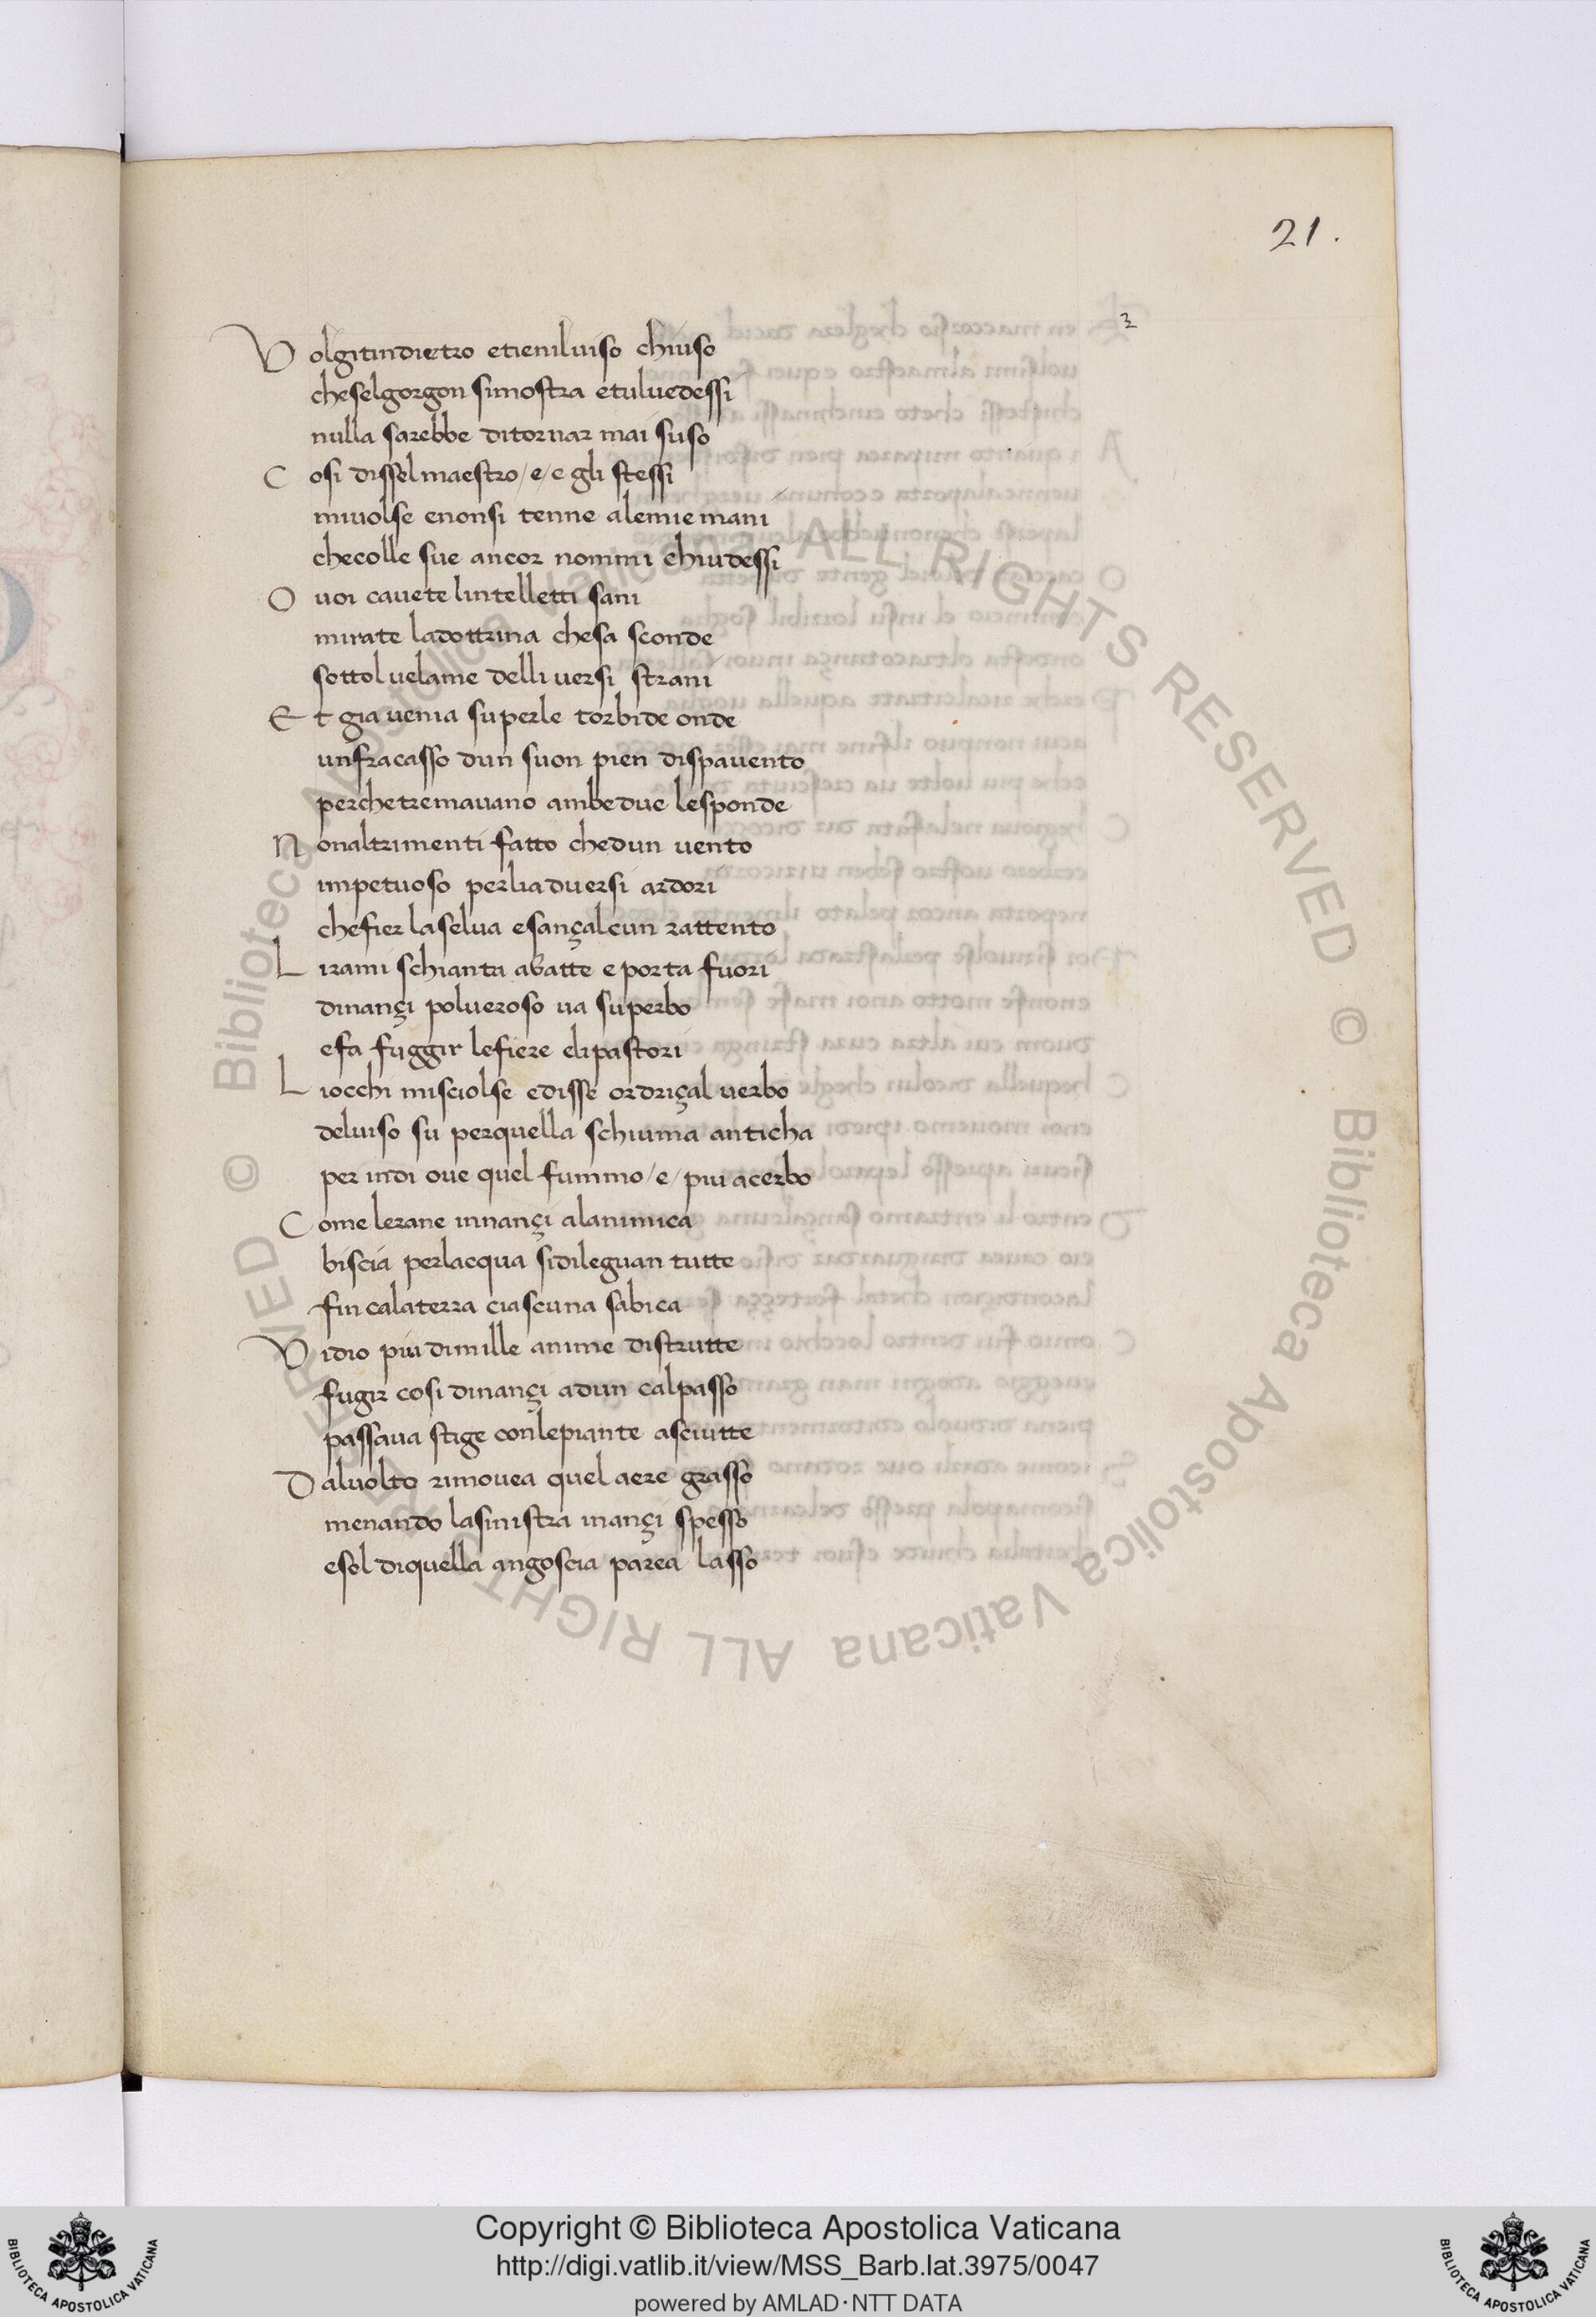 21.
3
Volgitindietro etieniluiso chiuso
cheselgorgon simostra etuluedessi
nulla sarebbe ditornar mai suso
Cosi disselmaestro/e/e gli stessi
miuolse enonsi tenne alemie mani
checolle sue ancor nommi chiudessi
O uoi cauete lintelletti sani
mirate ladottrina chesa sconde
sottol uelame delli uersi strani
Et gia uenia superle torbide onde
unfracasso dun suon pien dispauento
perchetremauano ambedue lesponde
Nonaltrimenti fatto chedun uento
impetuoso perliaduersi ardori
chefier laselua esançalcun rattento
Lirami schianta abatte e porta fuori
dinançi polueroso ua superbo
efa fuggir lefiere elipastori
Liocchi misciolse edisse ordriçal uerbo
deluiso su perquella schiuma anticha
per indi oue quel fummo/e/piu acerbo
Come lerane innançi alanimica
biscia perlacqua sidileguan tutte
fin calaterra ciascuna sabica
Vidio piu dimille anime distrutte
fugir cosi dinançi adun calpasso
passaua stige conlepiante asciutte
Daluolto rimouea quel aere grasso
menando lasinistra inançi spesso
esol diquella angoscia parea lasso
© Biblioteca Apostolica Vaticana ALL RIGHTS RESERVED © Biblioteca Apostolica Vaticana ALL RIGHTS RESERVED
Copyright © Biblioteca Apostolica Vaticana
http://digi.vatlib.it/view/MSS_Barb.lat.3975/0047
powered by AMLAD·NTT DATA
BIBLIOTECA APOSTOLICA VATICANA
BIBLIOTECA APOSTOLICA VATICANA